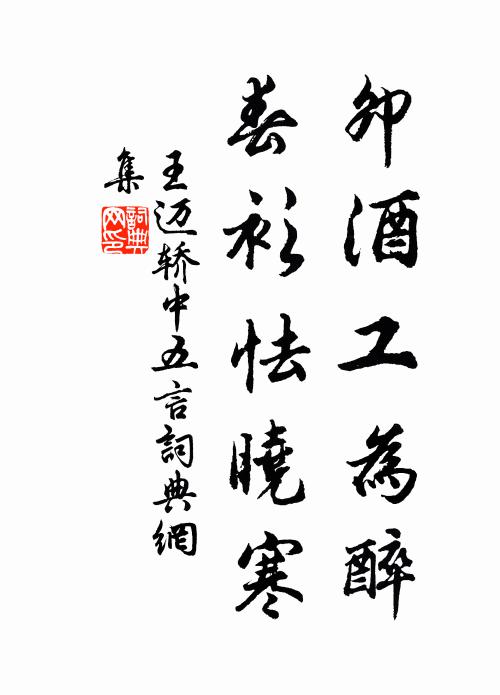 卯酒工為醉
春衫怯曉寒
王迈轿中五言詞典網
集
詞典网印